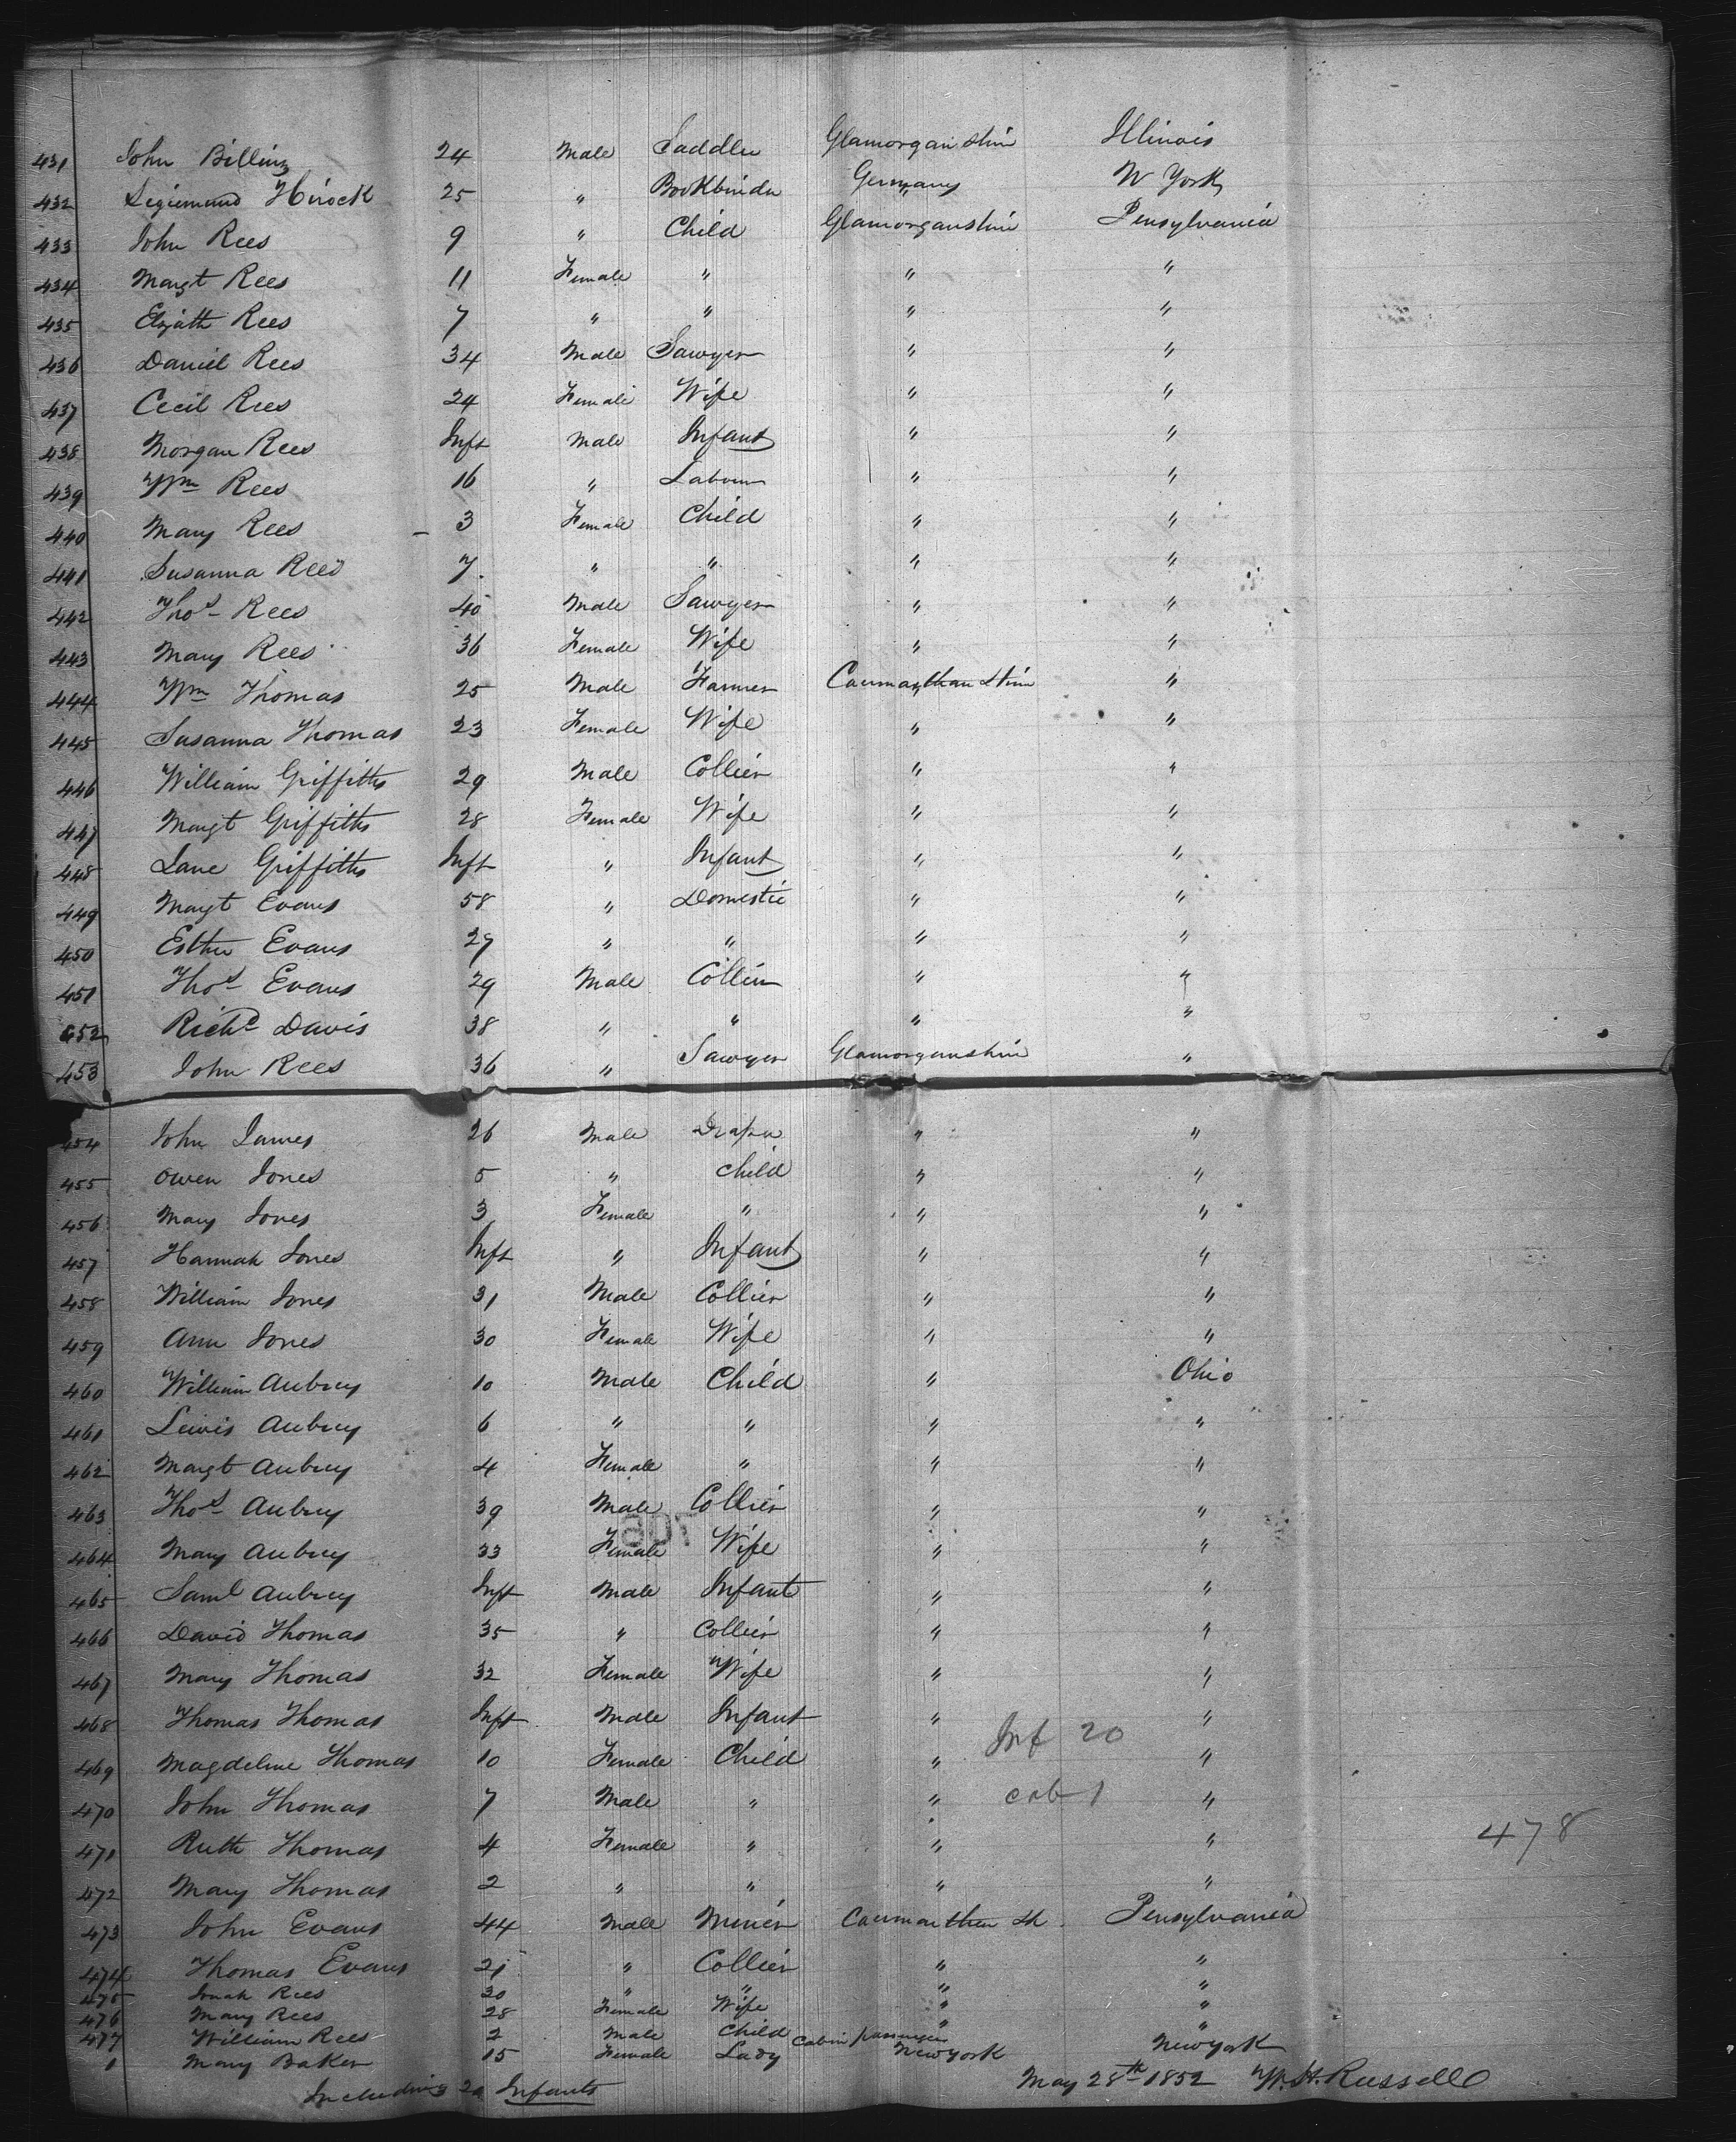 431 John Billing 24 Male Saddler Glamorganshire Illinois
432 25 " Bookbinder Germany N York
433 John Rees 9 " Child Glamorganshire Pensylvania
434 Margt Rees 11 Female " " "
435 Elizath Rees 7 " " " "
436 Daniel Rees 34 Male Sawyer " "
437 Cecil Rees 24 Female Wife " "
438 Morgan Rees Inft Male Infant " "
439 Wm Rees 16 " Labourer " "
440 Mary Rees 3 Female Child " "
441 Susanna Rees 7 " " " "
442 Thos Rees 40 Male Sawyer " "
443 Mary Rees 36 Female Wife " "
444 Wm Thomas 25 Male Farmer Caurmarthan Shire "
445 Susanna Thomas 23 Female Wife " "
446 William Griffiths 29 Male Collier " "
447 Margt Griffiths 28 Female Wife " "
448 Jane Griffiths Inft " Infant " "
449 Margt Evans 58 " Domestic " "
450 Esther Evans 27 " " " "
451 Thos Evans 29 Male Collier " "
452 Richd Davis 38 " " " "
453 John Rees 36 " Sawyer Glamorganshire "
454 John James 26 Male Draper " "
455 Owen Jones 5 " Child " "
456 Mary Jones 3 Female " " "
457 Hannah Jones Inft " Infant " "
458 William Jones 31 Male Collier " "
459 Ann Jones 30 Female Wife " "
460 William Aubrey 10 Male Child " Ohio
461 Lewis Aubrey 6 " " " "
462 Margt Aubrey 4 Female " " "
463 Thos Aubrey 39 Male Collier " "
464 Mary Aubrey 33 Female Wife " "
465 Saml Aubrey Inft Male Infant " "
466 David Thomas 35 " Collier " "
467 Mary Thomas 32 Female Wife " "
468 Thomas Thomas Inft Male Infant " "
Inf 20
469 Magdeline Thomas 10 Female Child " "
470 John Thomas 7 Male " " "
cab 1
471 Ruth Thomas 4 Female " " "
478
472 Mary Thomas 2 " " " "
473 John Evans 44 Male Miner Caurmarthen Sh Pensylvania
474 Thomas Evans 21 " Collier " "
475 Jonah Rees 30 " " " "
476 Mary Rees 28 Female Wife " "
477 William Rees 2 Male Child " "
Cabin passenger
1 Mary Baker 15 Female Lady New York New York
Including 20 Infants
May 28th 1852 W. H. Russell